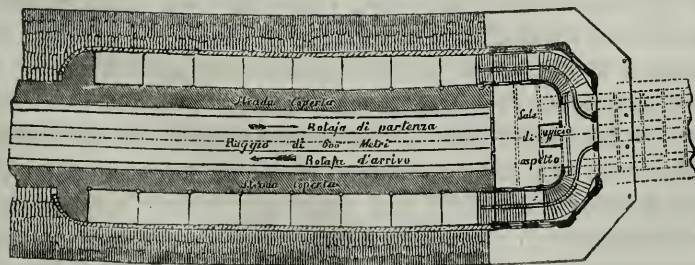 Strada coperta
Rotaja di partenza
Raggio di 600 Metri
Rotaja d'arrivo
Strada coperta
Sale
di
aspetto
Ufficio